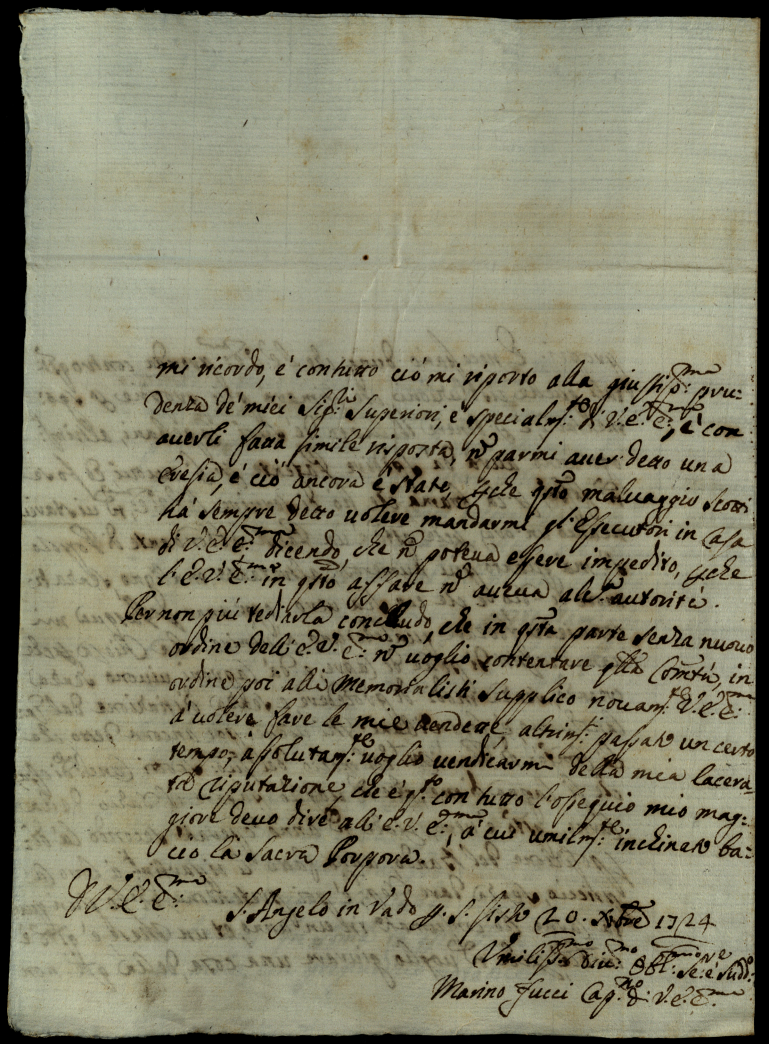 mi ricordo, é con tutto ció mi riporto alla giustiss:ma pru:
denza dé miei Sig:ri Superiori, é specialm:te di V. E. E:ma, é con
averli fatta simile risposta, ñ parmi aver detto una
eresia, é ció ancora é stato, perche qsto malvaggio Scotti
há sempre detto volere mandarmi gl'Esecutori in Casa
di V. E. E:ma dicendo, che ñ poteva essere impedito, perche
l'E. V. E:ma in qsto affare ñ aveva alc:a autoritá.
Per non piú tediarla concludo, che in qsta parte senza nuovo
ordine dell'E. V. E:ma ñ voglio contentare qsta Comtá, in
ordine poi alli Memorialisti supplico novam:te V. E. E:ma
á volere fare le mie vendette, altrim:ti passato un certo
tempo, assolutam:te voglio vendicarmi della mia lacera:
ta riputazione, che é q:to con tutto l'ossequio mio mag:
giore devo dire all'E. V. E:ma, á cui umilm:te inchinato ba:
cio la Sacra Porpora.
D V. E. E:ma
S. Angelo in Vado p. S. Sisto 20. Xbre 1724
Umiliss:mo Div:mo Obl:mo Se:re é Sudd:o
Marino Fucci Cap:no di V. E. E:ma